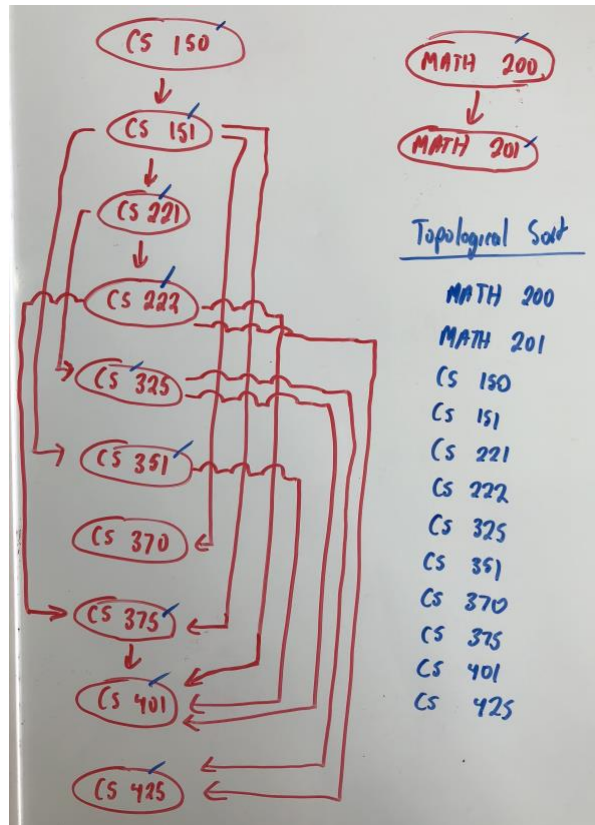 CS 150
CS 151
CS 221
CS 222
CS 325
CS 351
CS 370
CS 375
CS 401
CS 425
MATH 200
MATH 201
Topological Sort
MATH 200
MATH 201
CS 150
CS 151
CS 221
CS 222
CS 325
CS 351
CS 370
CS 375
CS 401
CS 425